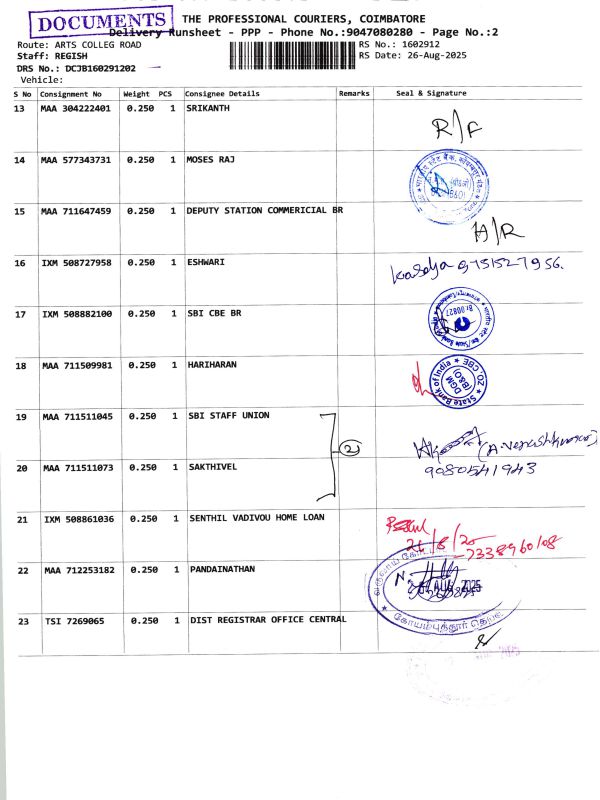 DOCUMENTS
THE PROFESSIONAL COURIERS, COIMBATORE
Delivery Runsheet - PPP - Phone No.:9047080280 - Page No.:2
Route: ARTS COLLEG ROAD RS No.: 1602912
Staff: REGISH RS Date: 26-Aug-2025
DRS No.: DCJB160291202
Vehicle:
S No Consignment No Weight PCS Consignee Details Remarks Seal & Signature
13 MAA 304222401 0.250 1 SRIKANTH
R/F
14 MAA 577343731 0.250 1 MOSES RAJ
15 MAA 711647459 0.250 1 DEPUTY STATION COMMERICIAL BR
A/R
16 IXM 508727958 0.250 1 ESHWARI
9751527956.
17 IXM 508882100 0.250 1 SBI CBE BR
Br.00827
18 MAA 711509981 0.250 1 HARIHARAN
State Bank of India ★ ZO, CBE ★
DGM
(B&O)
19 MAA 711511045 0.250 1 SBI STAFF UNION
2
20 MAA 711511073 0.250 1 SAKTHIVEL
9080541943
21 IXM 508861036 0.250 1 SENTHIL VADIVOU HOME LOAN
7338960108
22 MAA 712253182 0.250 1 PANDAINATHAN
AUG 2025
கோயம்புத்தூர் தெற்கு
23 TSI 7269065 0.250 1 DIST REGISTRAR OFFICE CENTRAL